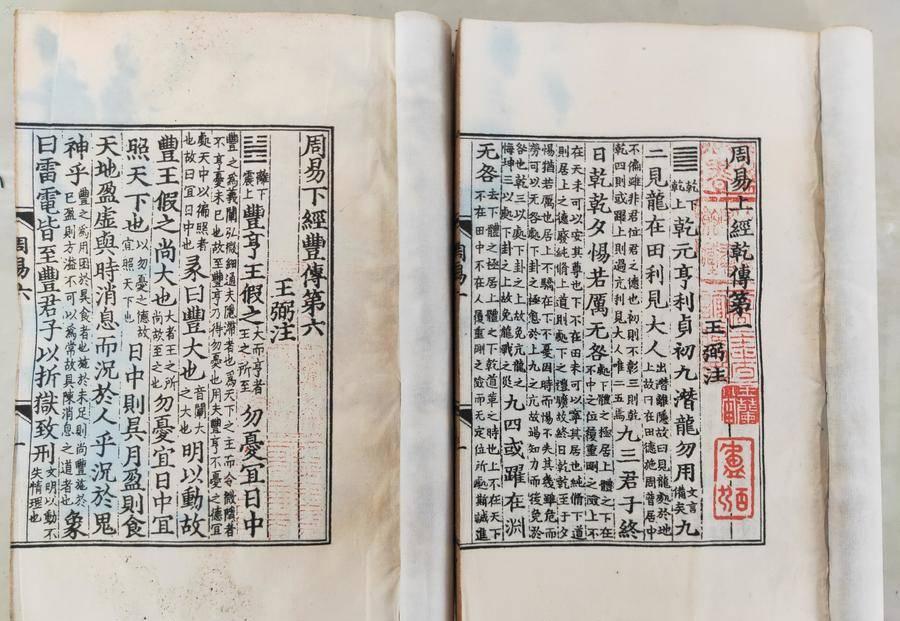 周易上經乾傳第一
王弼注
䷀乾下乾上 乾元亨利貞初九潛龍勿用文言備矣九
二見龍在田利見大人出潛離隱故曰見龍處於地上故曰在田德施周普居中
不偏雖非君位君之德也初則不彰三則乾乾四則或躍上則過亢利見大人唯二五焉九三君子終
日乾乾夕惕若厲无咎處下體之極居上體之下在不中之位履重剛之險上不
在天未可以安其尊也下不在田未可以寧其居也純脩下道則居上之德廢純脩上道則處下之禮曠故終日乾乾至于夕
惕猶若厲也居上不驕在下不憂因時而惕不失其幾雖危而勞可以无咎處下卦之極愈於上九之亢故竭知力而後免於
咎也乾三以處下卦之上故免亢龍之悔坤三以處下卦之上故免龍戰之災九四或躍在淵
无咎去下體之極居上體之下乾道革之時也上不在天下不在田中不在人履重剛之險而无定位所處斯誠進
周易下經豐傳第六
王弼注
䷶離下震上 豐亨王假之大而亨者王之所至勿憂宜日中
豐之爲義闡弘微細通夫隱滯者也爲天下之主而令微隱者不亨憂未已也故至豐亨乃得勿憂也用夫豐亨不憂之德宜
處天中以徧照者也故曰宜日中也彖曰豐大也音闡大之大也明以動故
豐王假之尚大也大者王之所尚故至之也勿憂宜日中宜
照天下也以勿憂之德故宜照天下也日中則昃月盈則食
天地盈虛與時消息而況於人乎況於鬼
神乎豐之爲用困於昃食者也施於未足則尚豐施於已盈則方溢不可以爲常故具陳消息之道者也象
曰雷電皆至豐君子以折獄致刑文明以動不失情理也
周易六